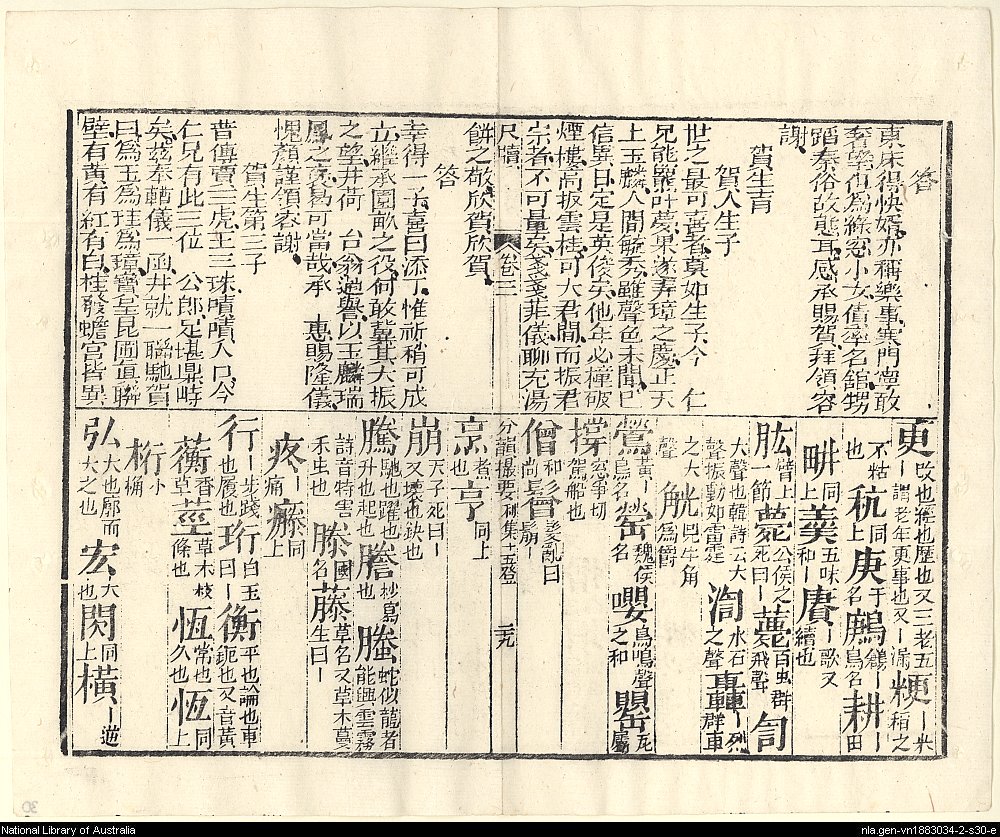 答
東床得快婿亦稱樂事寒門寧敢
奢望乃為綠窓小女債率名錧甥
蹈秦俗故態耳感承賜賀拜領容
謝
賀生青
賀人生子
世之最可喜者莫如生子今 仁
兄能羆叶夢果遂弄璋之慶正天
上玉麟人間毓秀雖聲色未聞已
信異日定是英俊矣他年必撞破
煙樓高扳雲桂可大君閭而振君
宗者不可量矣戔戔非儀聊充湯
尺牘 卷三
餅之敬欣賀欣賀
答
幸得一子喜曰添丁惟祈稍可成
立繼承園畝之役何敢冀其大振
之望并荷 台翁過譽以玉麟瑞
鳳之褒曷可當哉承 惠賜隆儀
愧顏謹領容謝
賀生第三子
昔傳賈三虎王三珠嘖嘖人口今
仁兄有此三位 公郎足堪鼎峙
矣茲奉轉儀一函并就一聯馳賀
曰為玉為珪為璋寶呈昆圃真聯
璧有黃有紅有白桂發蟾宮皆異
更 改也歷也又三老五更 謂老年更事也又 漏 粳 米 稻之
不粘也 秔 同上 庚 名 于 鶊 鶬 鳥名 耕 田
畊 同上 羹 五味和 賡 歌又續也
肱 臂上一節 薨 公侯之死曰 薨 百虫群飛聲 訇
大聲也韓詩云大聲振動如雷霆 渹 水石之聲 轟 列群車
之大聲 觥 兕牛角為爵
鶯 黃鳥名 罃 魏侯名 嚶 鳥鳴聲之和 罌 瓦
撐 駕船也
僧 和尚 鬙 髮亂曰鬅
分韻撮要利集十五登 二九
烹 煮也 亨 同上
崩 天子死曰 又壞也
騰 馳也躍也升也起也 謄 抄寫也 螣 蛇似龍者能興雲霧
詩音特害禾虫也 滕 國名 藤 草名又草木蔓生曰
疼 痛 㾮 同上
行 步踐也履也 珩 白玉曰 衡 平也論也車軛也又音黃
蘅 香草 莖 草木枝條也 恆 常也久也 恒 同上
桁 小桷
弘 大也廓而大之也 宏 大也 閎 同上 橫 逆
National Library of Australia
nla.gen-vn1883034-2-s30-e